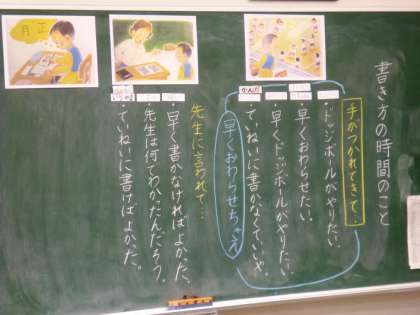 書き方の時間のこと
手がつかれてきて…
・ドッジボールがやりたい。
・早くおわらせたい。
・早くドッジボールがやりたい。
・ていねいに書かなくていいや。
早くおわらせちゃえ
先生に言われて…
・早く書かなければよかった。
・先生は何でわかったんだろう。
・ていねいに書けばよかった。
正月